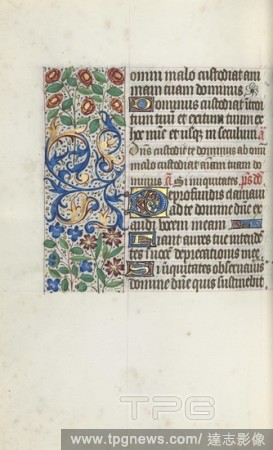 omni malo custodiat ani
mam tuam dominus
Dominus custodiat introi
tum tuum et exitum tuum ex
hoc nunc et usqz in seculum a
Dns custodit te dominus ab omi
malo custodiat animam tuam do
minus a Si iniquitates ps d d
De profundis clamavi
ad te domine dne ex
audi vocem meam
Fiant aures tue intende
tes in voce deprecationis mee
Si iniquitates observaveris
domine dne quis sustinebit
TPG
www.tpgnews.com/ 達志影像